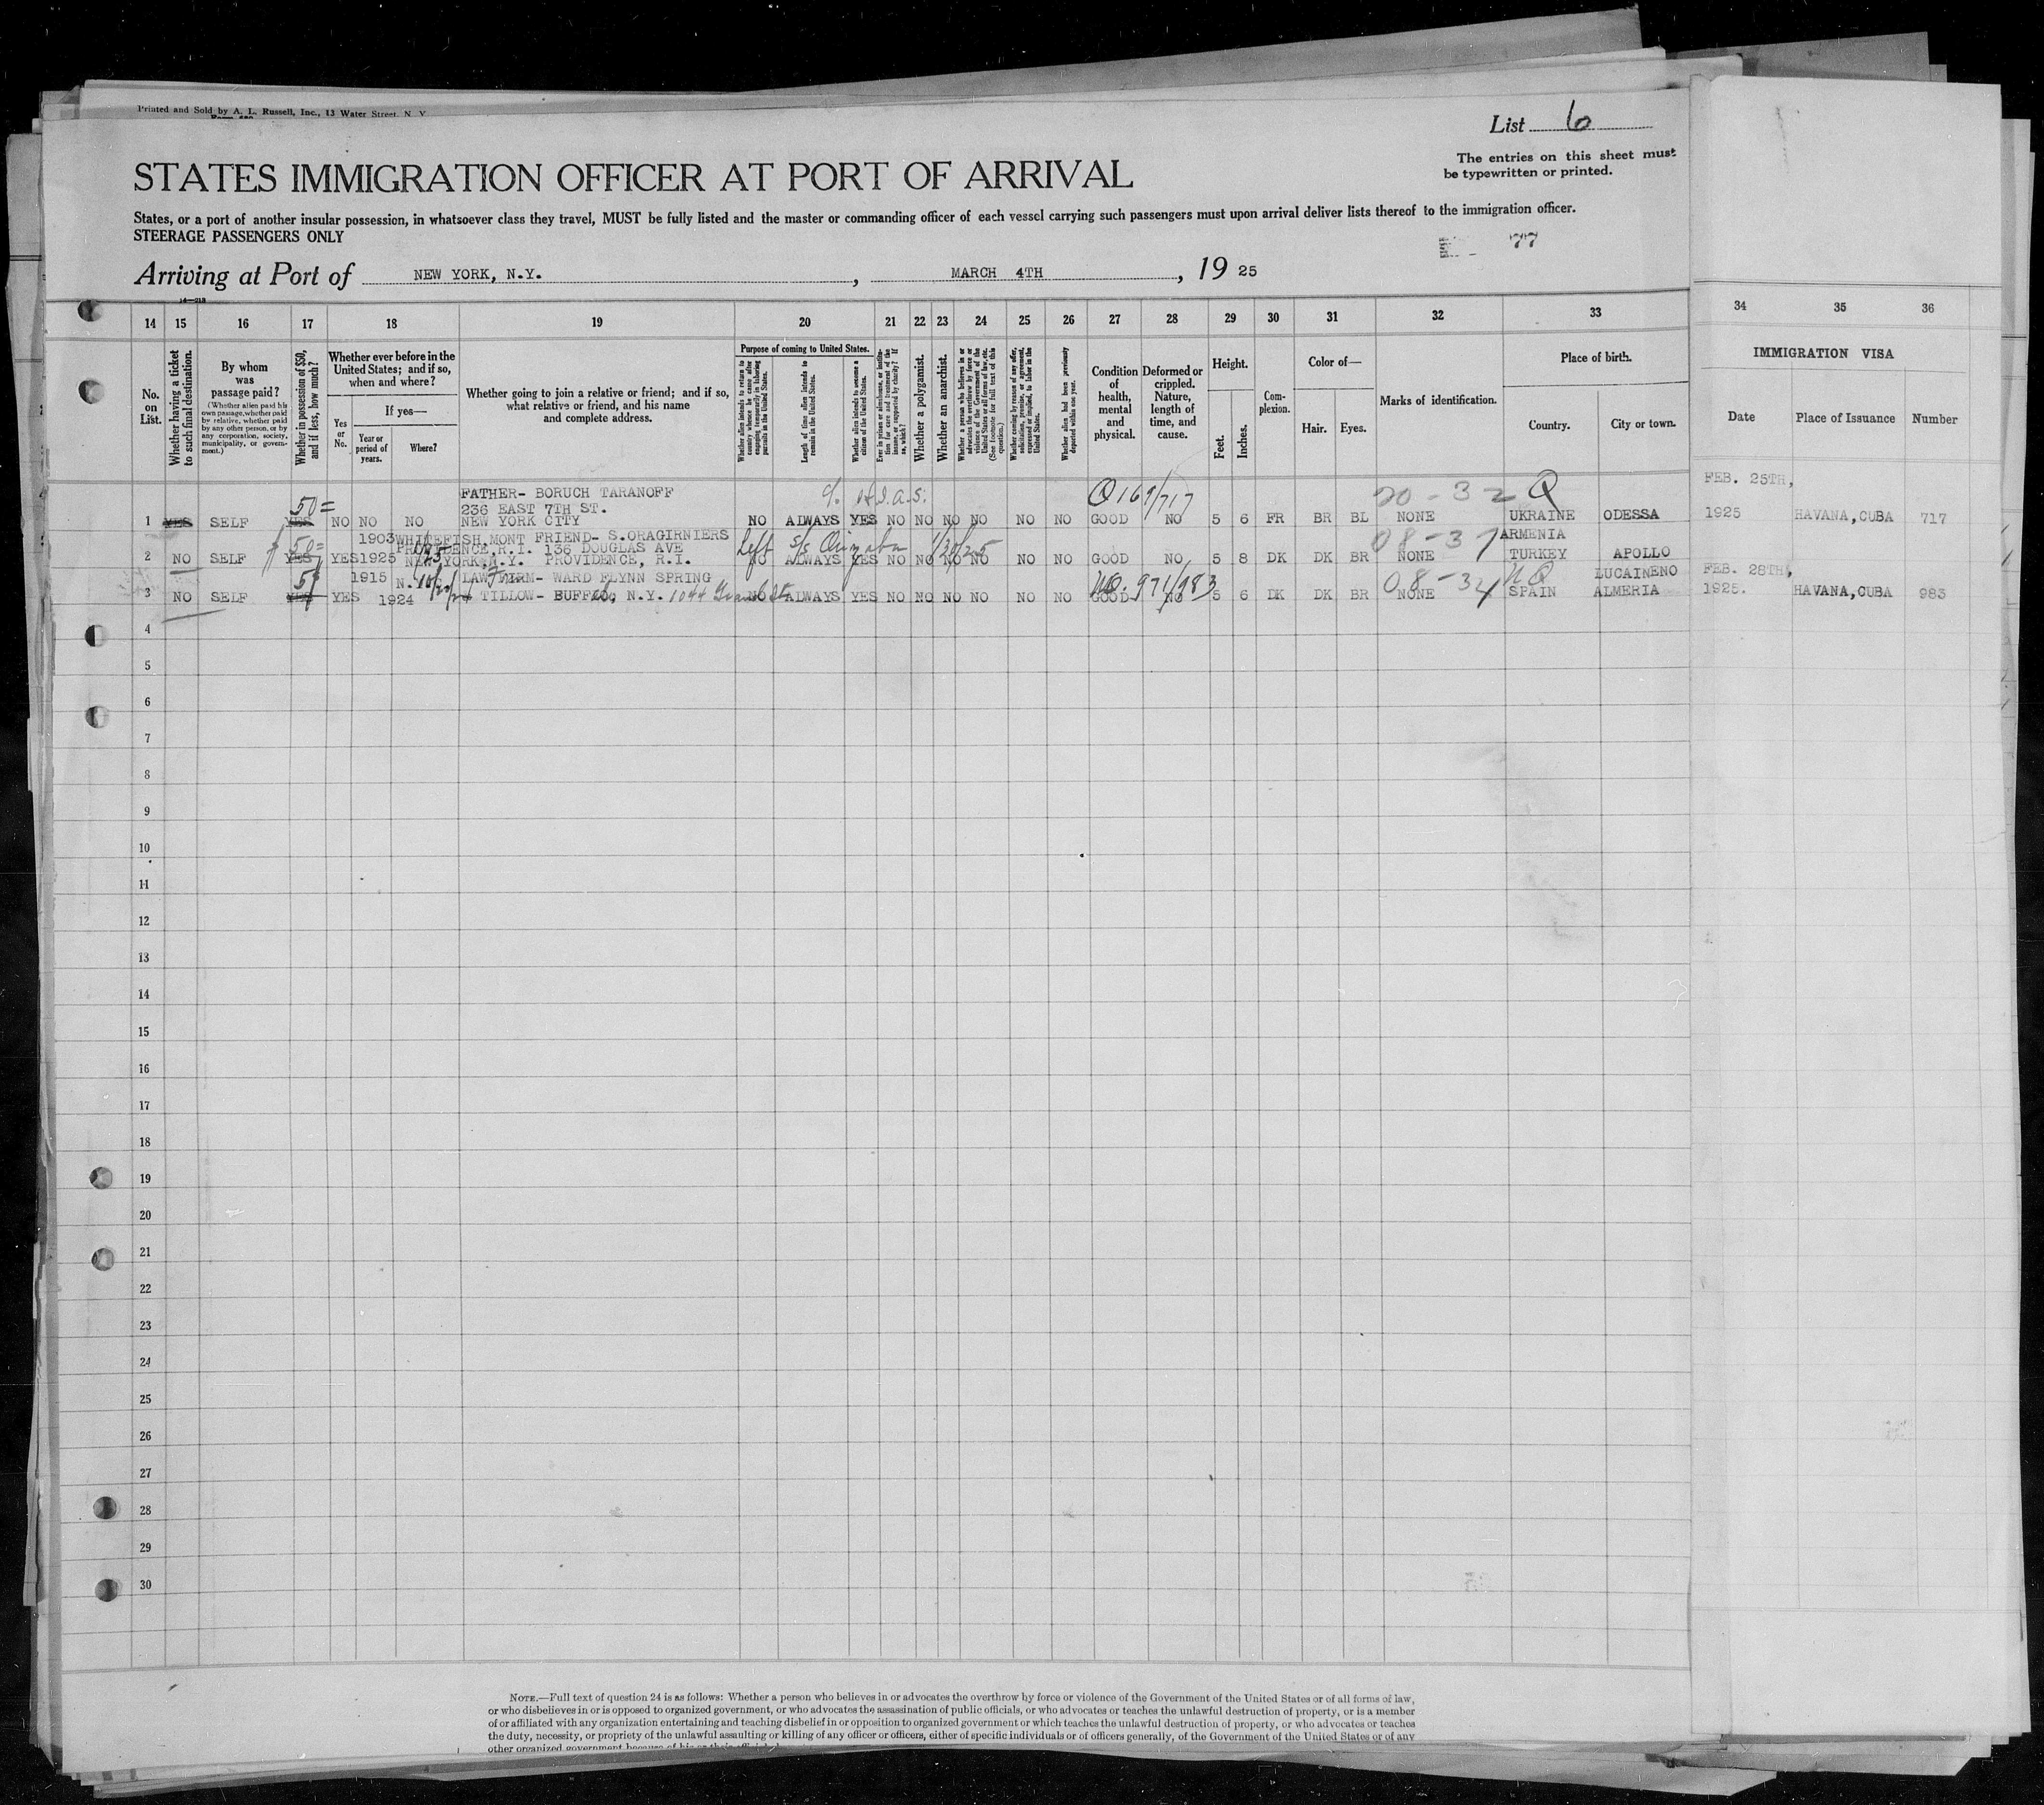 Printed and Sold by A. L. Russell, Inc., 13 Water Street, N. Y.
List 6
The entries on this sheet must
be typewritten or printed.
STATES IMMIGRATION OFFICER AT PORT OF ARRIVAL
States, or a port of another insular possession, in whatsoever class they travel, MUST be fully listed and the master or commanding officer of each vessel carrying such passengers must upon arrival deliver lists thereof to the immigration officer.
STEERAGE PASSENGERS ONLY
77
Arriving at Port of NEW YORK, N.Y. , MARCH 4TH , 19 25
14 15 16 17 18 19 20 21 22 23 24 25 26 27 28 29 30 31 32 33 34 35 36
No. on List.
Whether having a ticket to such final destination.
By whom was passage paid?
(Whether alien paid his own passage, whether paid by relative, whether paid by any other person, or by any corporation, society, municipality, or government.)
Whether in possession of $50, and if less, how much?
Whether ever before in the United States; and if so, when and where?
Yes or No.
If yes—
Year or period of years.
Where?
Whether going to join a relative or friend; and if so, what relative or friend, and his name and complete address.
Purpose of coming to United States.
Whether alien intends to return to country whence he came after engaging temporarily in laboring pursuits in the United States.
Length of time alien intends to remain in the United States.
Whether alien intends to become a citizen of the United States.
Ever in prison or almshouse, or institution for care and treatment of the insane, or supported by charity? If so, which?
Whether a polygamist.
Whether an anarchist.
Whether a person who believes in or advocates the overthrow by force or violence of the Government of the United States or all forms of law, etc. (See footnote for full text of this question.)
Whether coming by reason of any offer, solicitation, promise, or agreement, expressed or implied, to labor in the United States.
Whether alien had been previously deported within one year.
Condition of health, mental and physical.
Deformed or crippled. Nature, length of time, and cause.
Height.
Feet.
Inches.
Complexion.
Color of—
Hair.
Eyes.
Marks of identification.
Place of birth.
Country.
City or town.
IMMIGRATION VISA
Date
Place of Issuance
Number
FATHER- BORUCH TARANOFF c/o H.I.A.S. Q 169/717 20-32 Q FEB. 25TH,
50= 236 EAST 7TH ST.
1 YES SELF YES NO NO NO NEW YORK CITY NO ALWAYS YES NO NO NO NO NO NO GOOD NO 5 6 FR BR BL NONE UKRAINE ODESSA 1925 HAVANA,CUBA 717
1903 WHITEFISH,MONT FRIEND- S.ORAGIRNIERS 08-37 ARMENIA
50= PROVIDENCE,R.I. 136 DOUGLAS AVE Left S/S Orizaba 1/30/25
2 NO SELF YES YES 1925 NEW YORK,N.Y. PROVIDENCE, R.I. NO ALWAYS YES NO NO NO NO NO NO GOOD NO 5 8 DK DK BR NONE TURKEY APOLLO
1915 LAW FIRM- WARD FLYNN SPRING NQ. 971/983 08-34 NQ LUCAINENO FEB. 28TH,
3 NO SELF YES YES 1924 TILLOW- BUFFALO, N.Y. 1044 NO ALWAYS YES NO NO NO NO NO NO GOOD NO 5 6 DK DK BR NONE SPAIN ALMERIA 1925. HAVANA,CUBA 983
4
5
6
7
8
9
10
11
12
13
14
15
16
17
18
19
20
21
22
23
24
25
26
27
28
29
30
NOTE.—Full text of question 24 is as follows: Whether a person who believes in or advocates the overthrow by force or violence of the Government of the United States or of all forms of law,
or who disbelieves in or is opposed to organized government, or who advocates the assassination of public officials, or who advocates or teaches the unlawful destruction of property, or is a member
of or affiliated with any organization entertaining and teaching disbelief in or opposition to organized government or which teaches the unlawful destruction of property, or who advocates or teaches
the duty, necessity, or propriety of the unlawful assaulting or killing of any officer or officers, either of specific individuals or of officers generally, of the Government of the United States or of any
other organized government because of his or their official